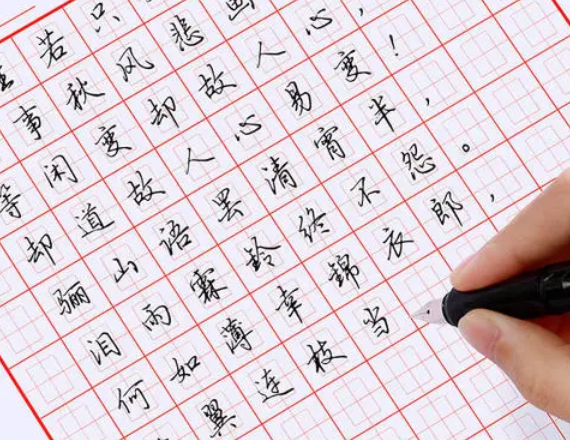 生若只
事秋风悲画
等闲变却故人心，
却道故人心易变！
骊山语罢清宵半，
泪雨霖铃终不怨。
何如薄幸锦衣郎，
翼连枝当